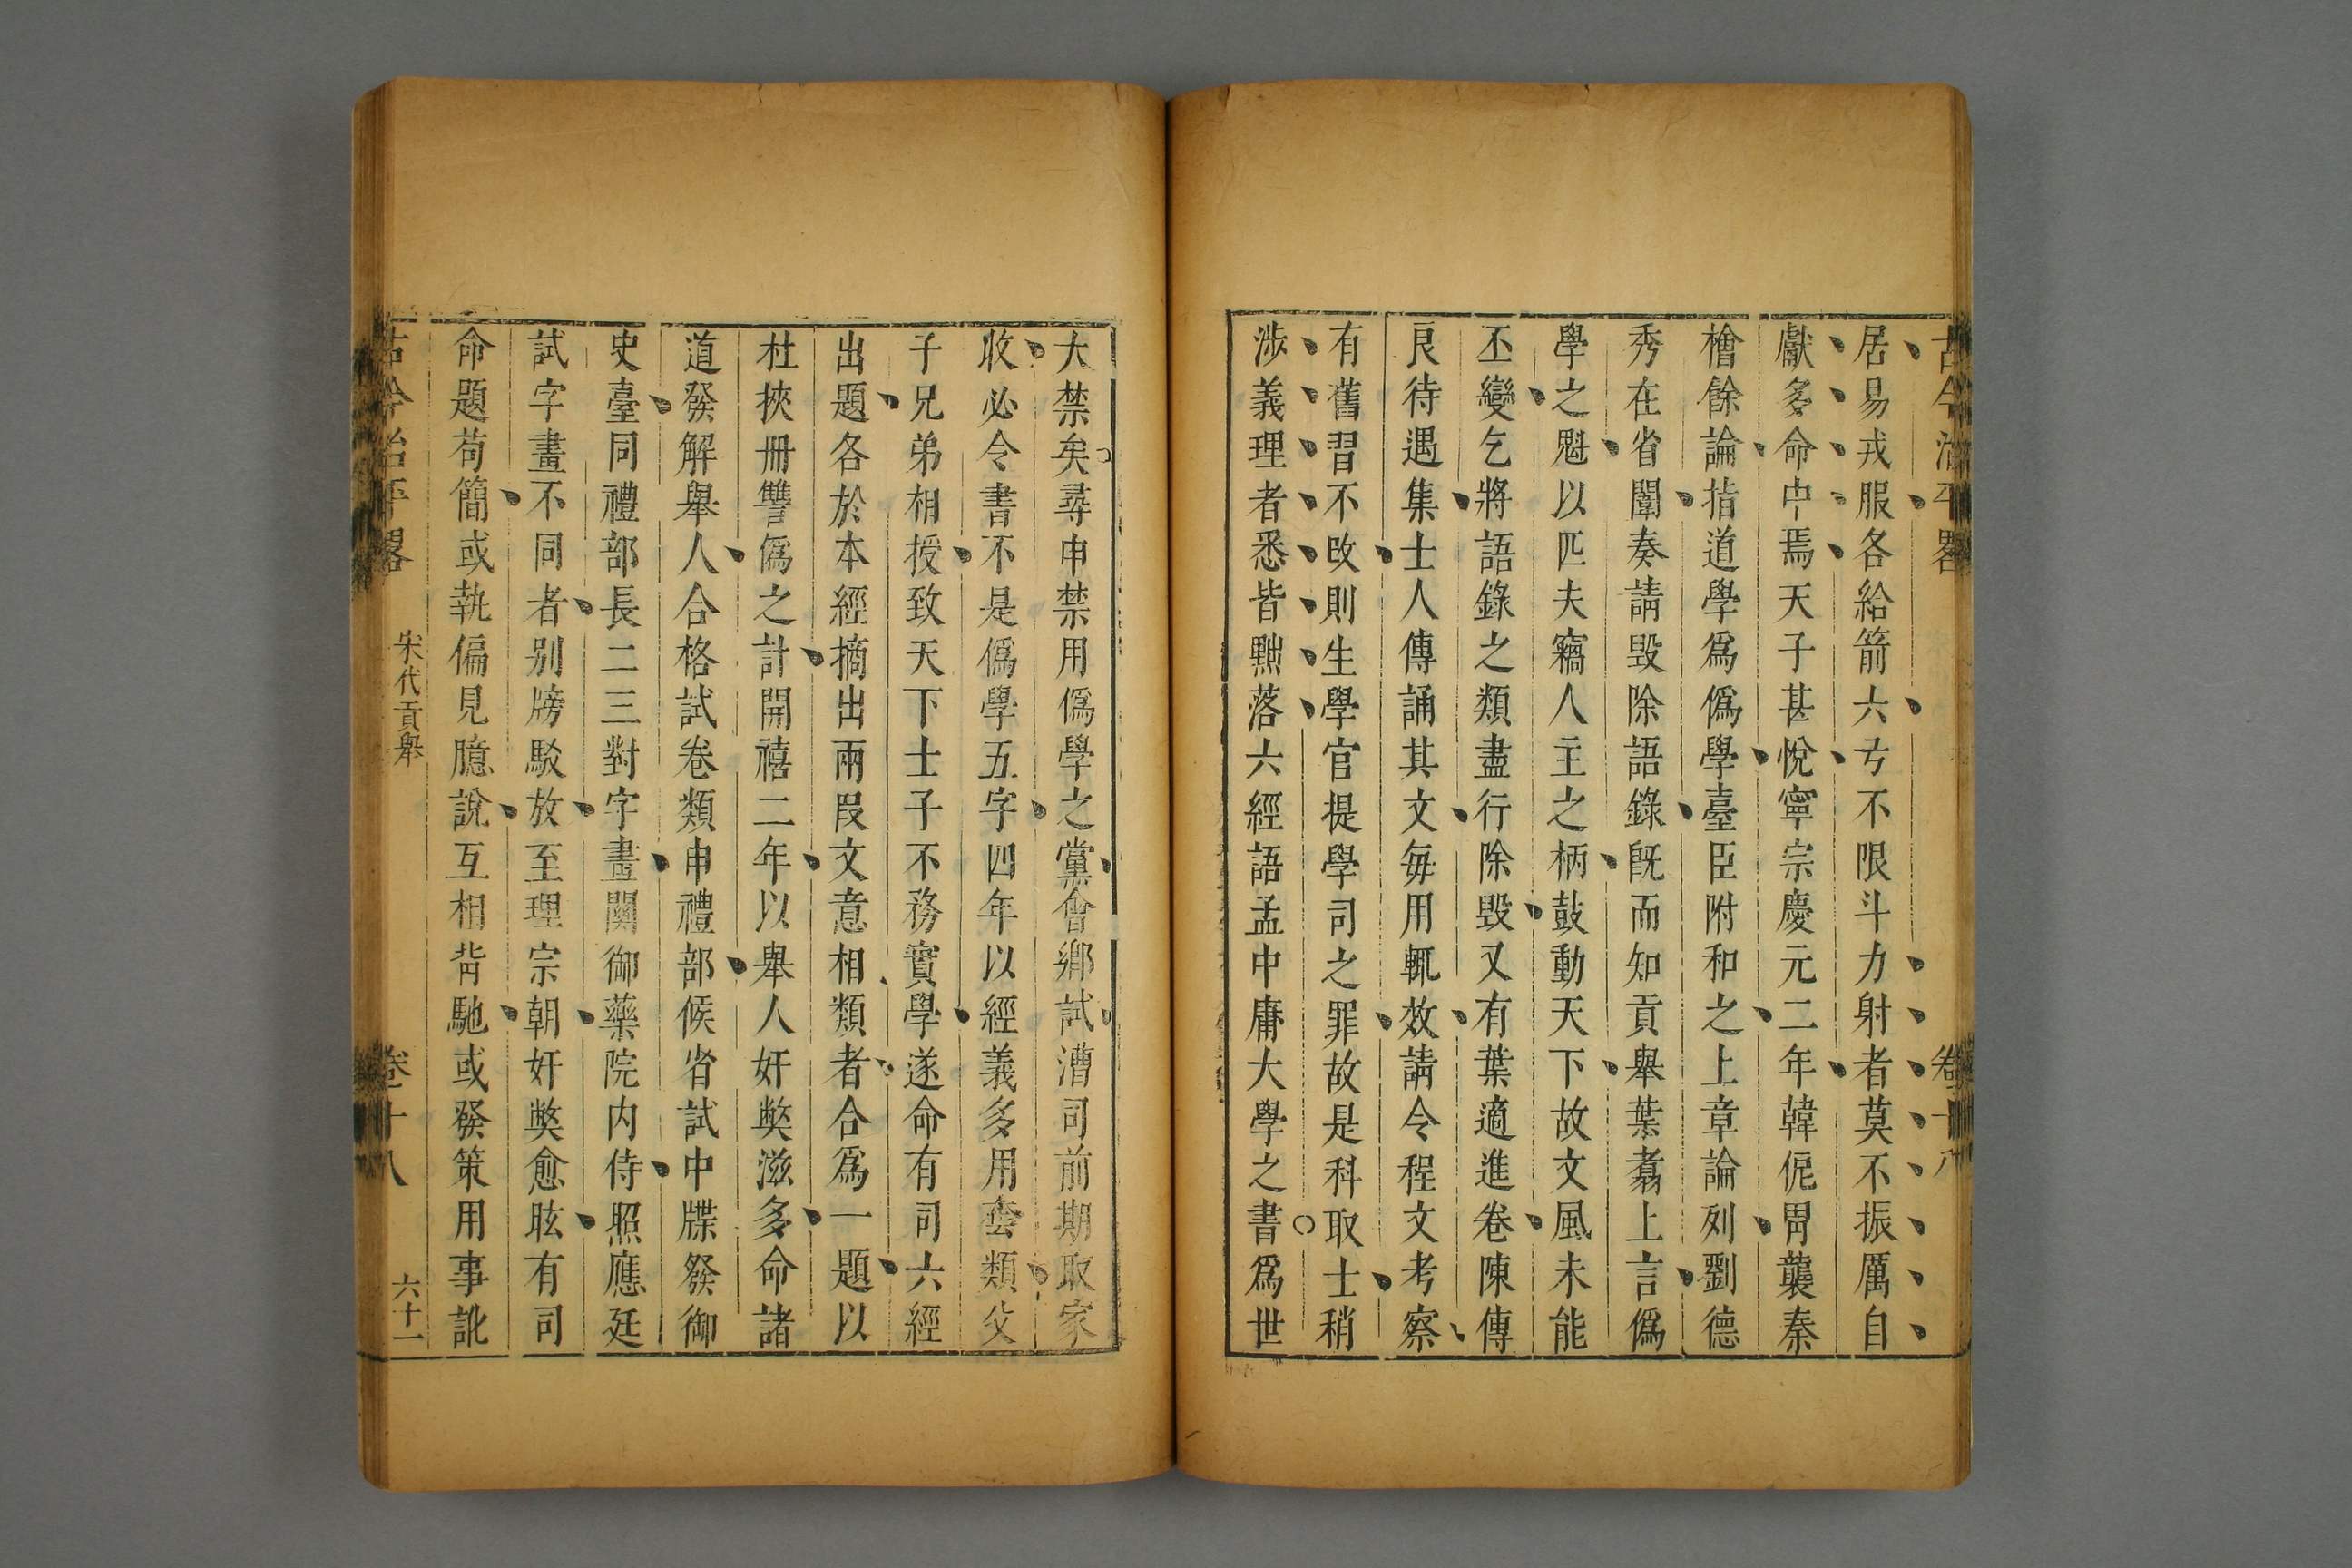 古今治平畧 卷十八
居易戎服各給箭六亐不限斗力射者莫不振厲自
獻多命中焉天子甚悅寧宗慶元二年韓侂胄襲秦
檜餘論指道學爲僞學臺臣附和之上章論列劉德
秀在省闈奏請毀除語錄旣而知貢舉葉翥上言僞
學之魁以匹夫竊人主之柄鼓動天下故文風未能
丕變乞將語錄之類盡行除毀又有葉適進卷陳傅
良待遇集士人傳誦其文每用輒效請令程文考察
有舊習不改則坐學官提學司之罪故是科取士稍
涉義理者悉皆黜落六經語孟中庸大學之書爲世
大禁矣尋申禁用僞學之黨會鄉試漕司前期取家
收必令書不是僞學五字四年以經義多用套類父
子兄弟相授致天下士子不務實學遂命有司六經
出題各於本經摘出兩段文意相類者合爲一題以
杜挾冊讐僞之計開禧二年以舉人奸弊滋多命諸
道發解舉人合格試卷類申禮部候省試中牒發御
史臺同禮部長二三對字畫關御藥院内侍照應廷
試字畫不同者別牓駁放至理宗朝奸弊愈眩有司
命題苟簡或執偏見臆說互相背馳或發策用事訛
古今治平畧 宋代貢舉 卷十八 六十一